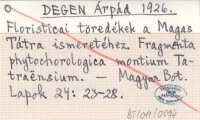 DEGEN Árpád 1926.
Floristicai töredékek a Magas
Tátra ismeretéhez. Fragmenta
phytochorologica montium Ta-
traënsium. — Magyar Bot.
Lapok 24: 23-28.